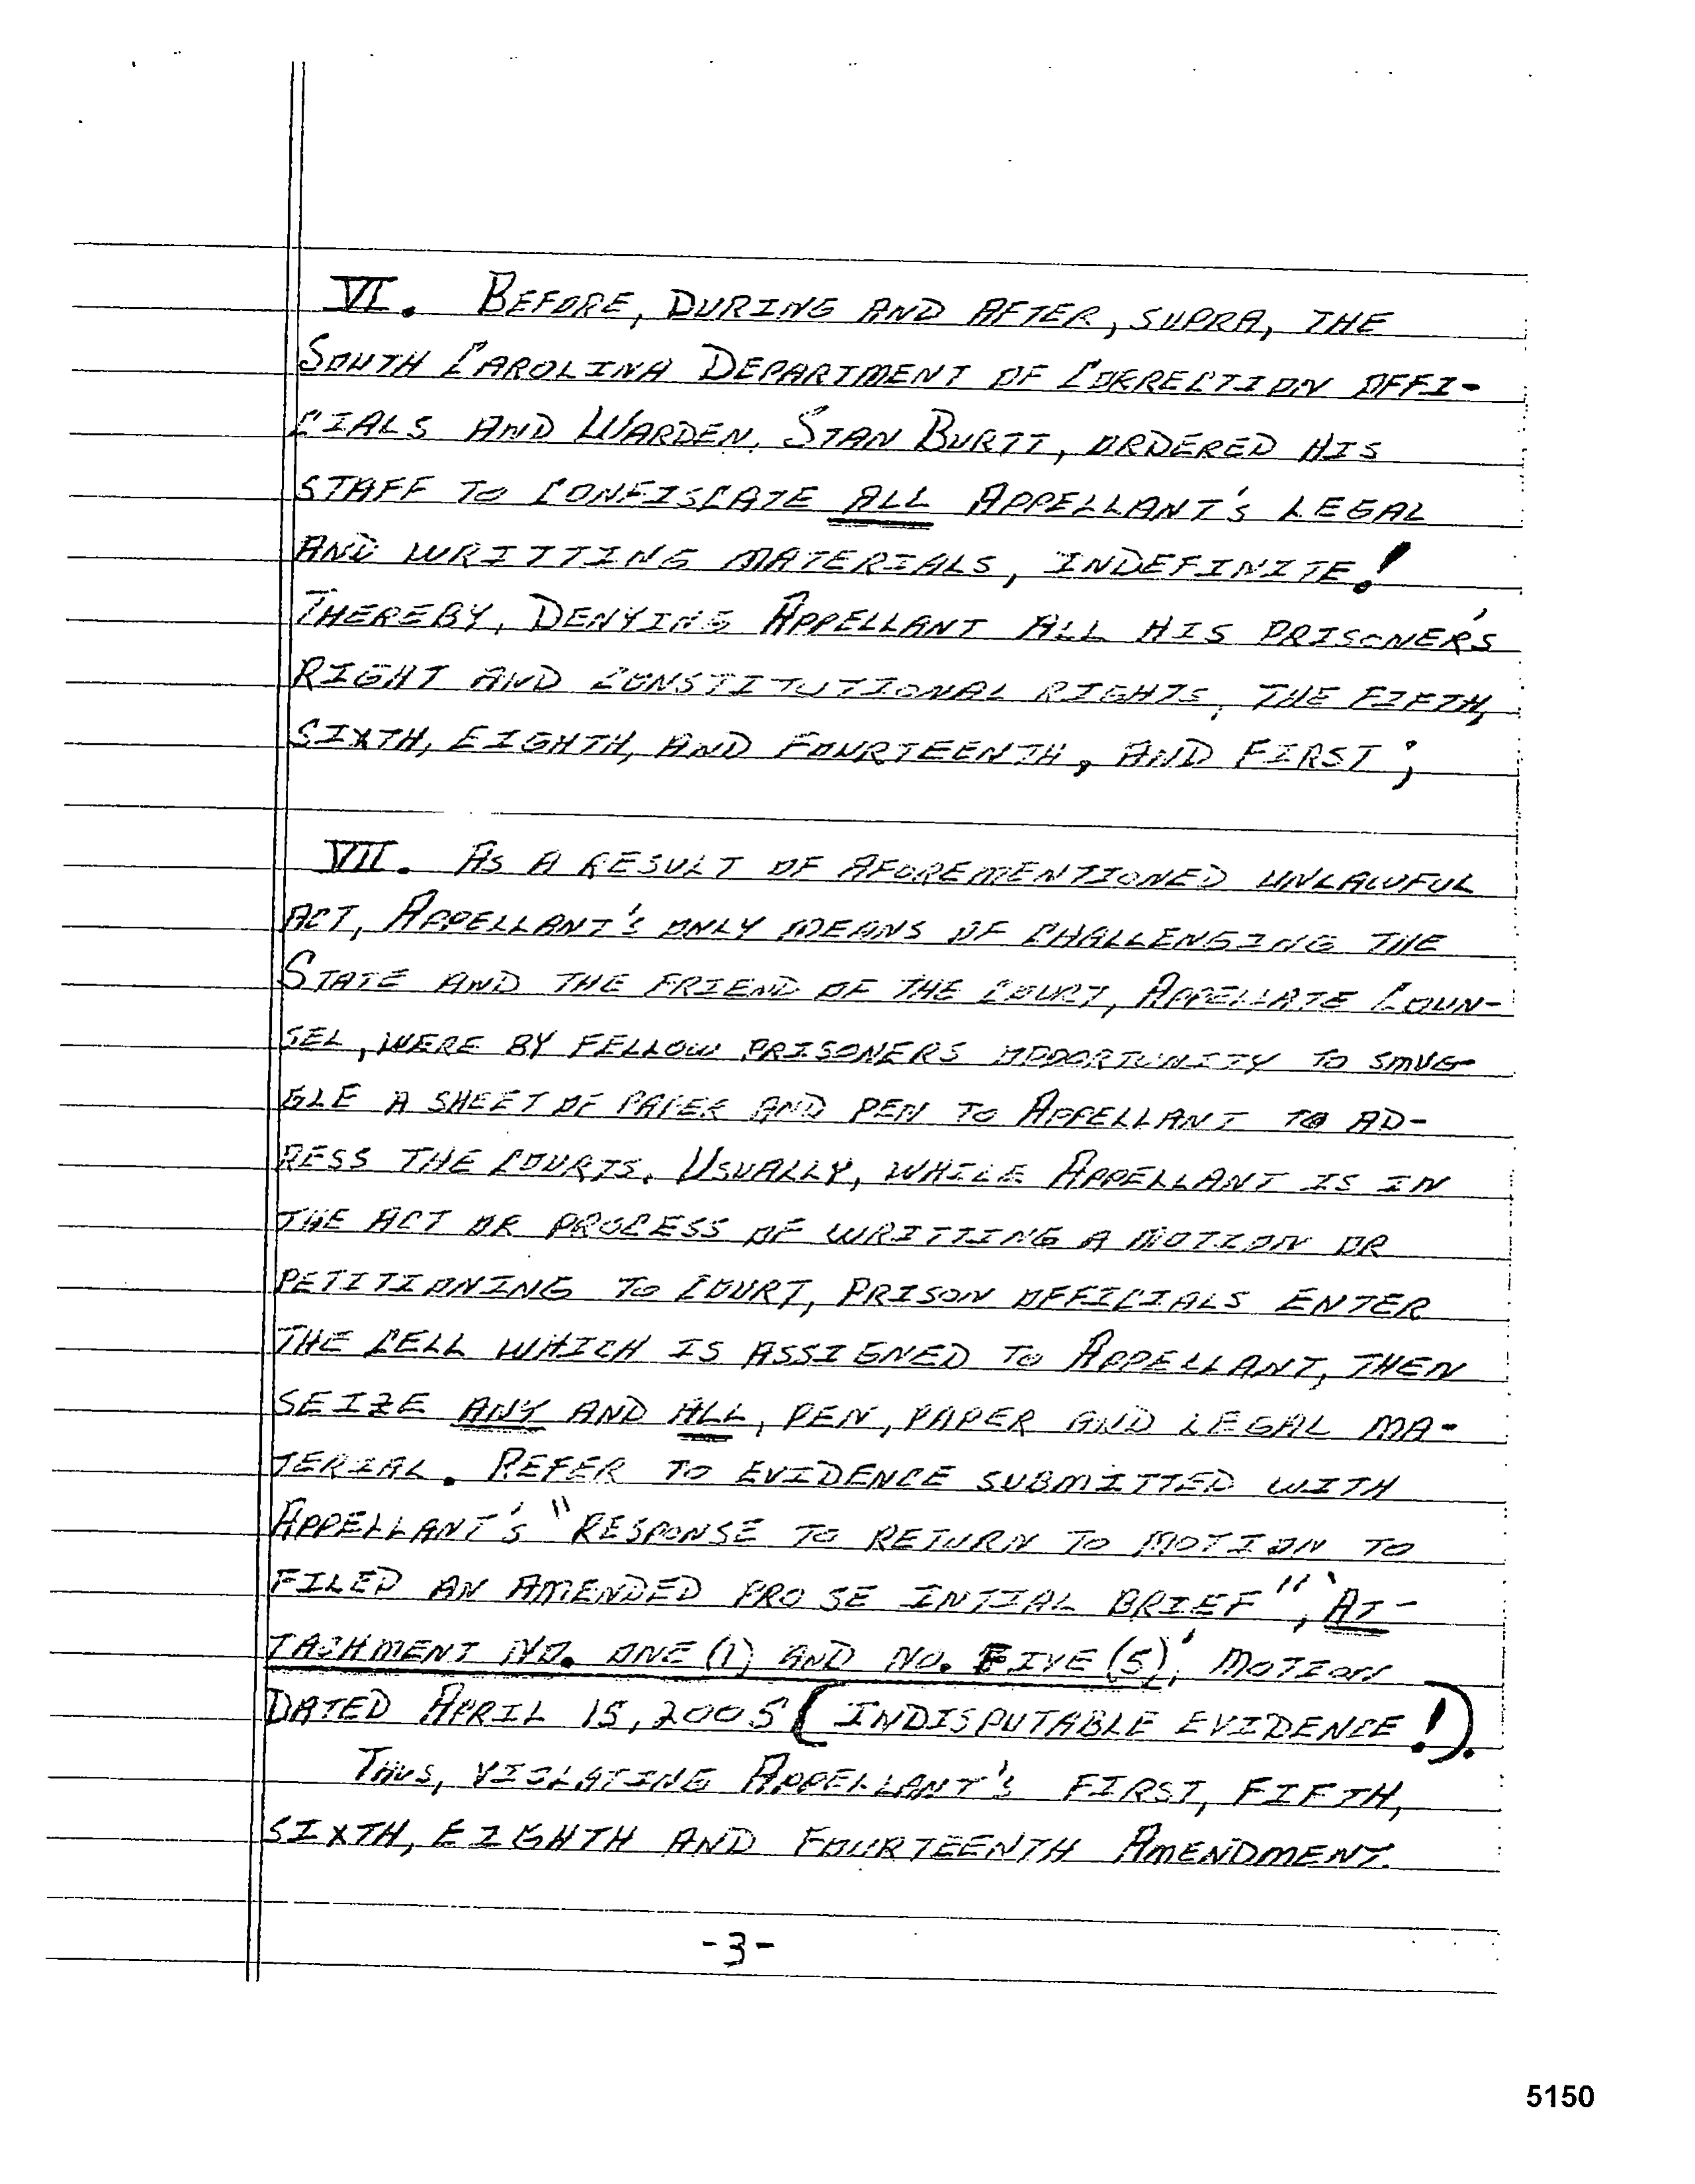 VI. BEFORE, DURING AND AFTER, SUPRA, THE
SOUTH CAROLINA DEPARTMENT OF CORRECTION OFFI-
CIALS AND WARDEN, STAN BURTT, ORDERED HIS
STAFF TO CONFISCATE ALL APPELLANT'S LEGAL
AND WRITTING MATERIALS, INDEFINITE!
THEREBY, DENYING APPELLANT ALL HIS PRISONER'S
RIGHT AND CONSTITUTIONAL RIGHTS, THE FIFTH,
SIXTH, EIGHTH, AND FOURTEENTH, AND FIRST;
VII. AS A RESULT OF AFOREMENTIONED UNLAWFUL
ACT, APPELLANT'S ONLY MEANS OF CHALLENGING THE
STATE AND THE FRIEND OF THE COURT, APPELLATE COUN-
SEL, WERE BY FELLOW PRISONERS OPPORTUNITY TO SMUG-
GLE A SHEET OF PAPER AND PEN TO APPELLANT TO AD-
RESS THE COURTS. USUALLY, WHILE APPELLANT IS IN
THE ACT OR PROCESS OF WRITTING A MOTION OR
PETITIONING TO COURT, PRISON OFFICIALS ENTER
THE CELL WHICH IS ASSIGNED TO APPELLANT, THEN
SEIZE ANY AND ALL, PEN, PAPER AND LEGAL MA-
TERIAL. REFER TO EVIDENCE SUBMITTED WITH
APPELLANT'S "RESPONSE TO RETURN TO MOTION TO
FILED AN AMENDED PRO SE INTIAL BRIEF", 'AT-
TACHMENT NO. ONE (1) AND NO. FIVE (5)', MOTION
DATED APRIL 15, 2005 (INDISPUTABLE EVIDENCE!).
THUS, VIOLATING APPELLANT'S FIRST, FIFTH,
SIXTH, EIGHTH AND FOURTEENTH AMENDMENT.
-3-
5150